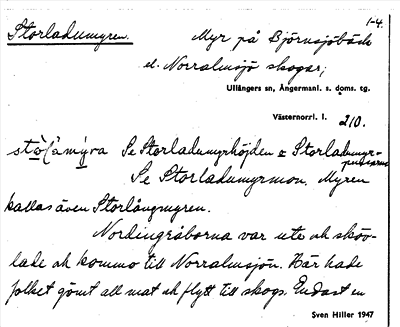 1-4.
Storladumyren. Myr på Björnsjöbäck
el. Norralmsjö skogar;
Ullångers sn, Ångermanl. s. doms. tg.
Västernorrl. l. 210.
Se Storladumyrhöjden o Storladumyr-
Se Storladumyrmon. Myren
kallas även Storlångmyren.
Nordingråborna var ute ok sköv-
lade ok kommo till Norralmsjön. Här hade
folket gömt all mat ok flytt till skogs. Endast en
Sven Hiller 1947